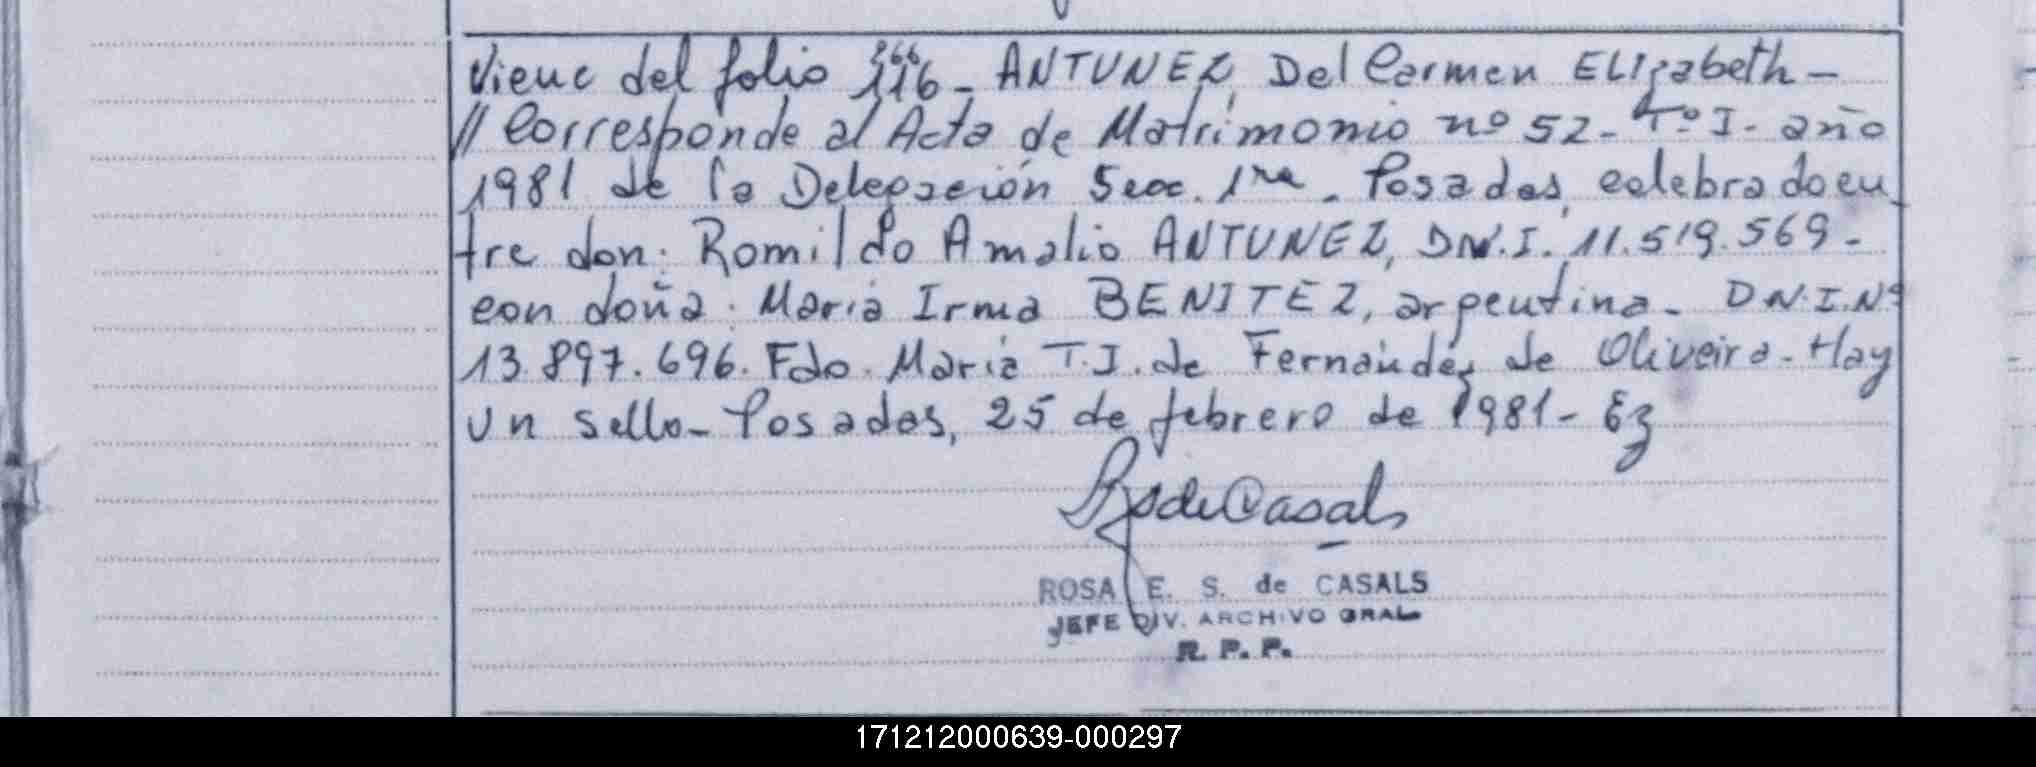 Viene del folio 116 - ANTUNEZ, Del Carmen ELIzabeth -
// Corresponde al Acta de Matrimonio nº 52 - Tº I - año
1981 de la Delegación Secc. 1ra. Posadas, celebrado en
tre don: Romildo Amalio ANTUNEZ, D.N.I. 11.519.569 -
con doña: Maria Irma BENITEZ, argentina - D.N.I. Nº
13.897.696. Fdo. Maria T.I. de Fernández de Oliveira - Hay
un sello - Posadas, 25 de febrero de 1981 -
RSdeCasals
ROSA E. S. de CASALS
JEFE DIV. ARCHIVO GRAL
R. P. P.
171212000639-000297